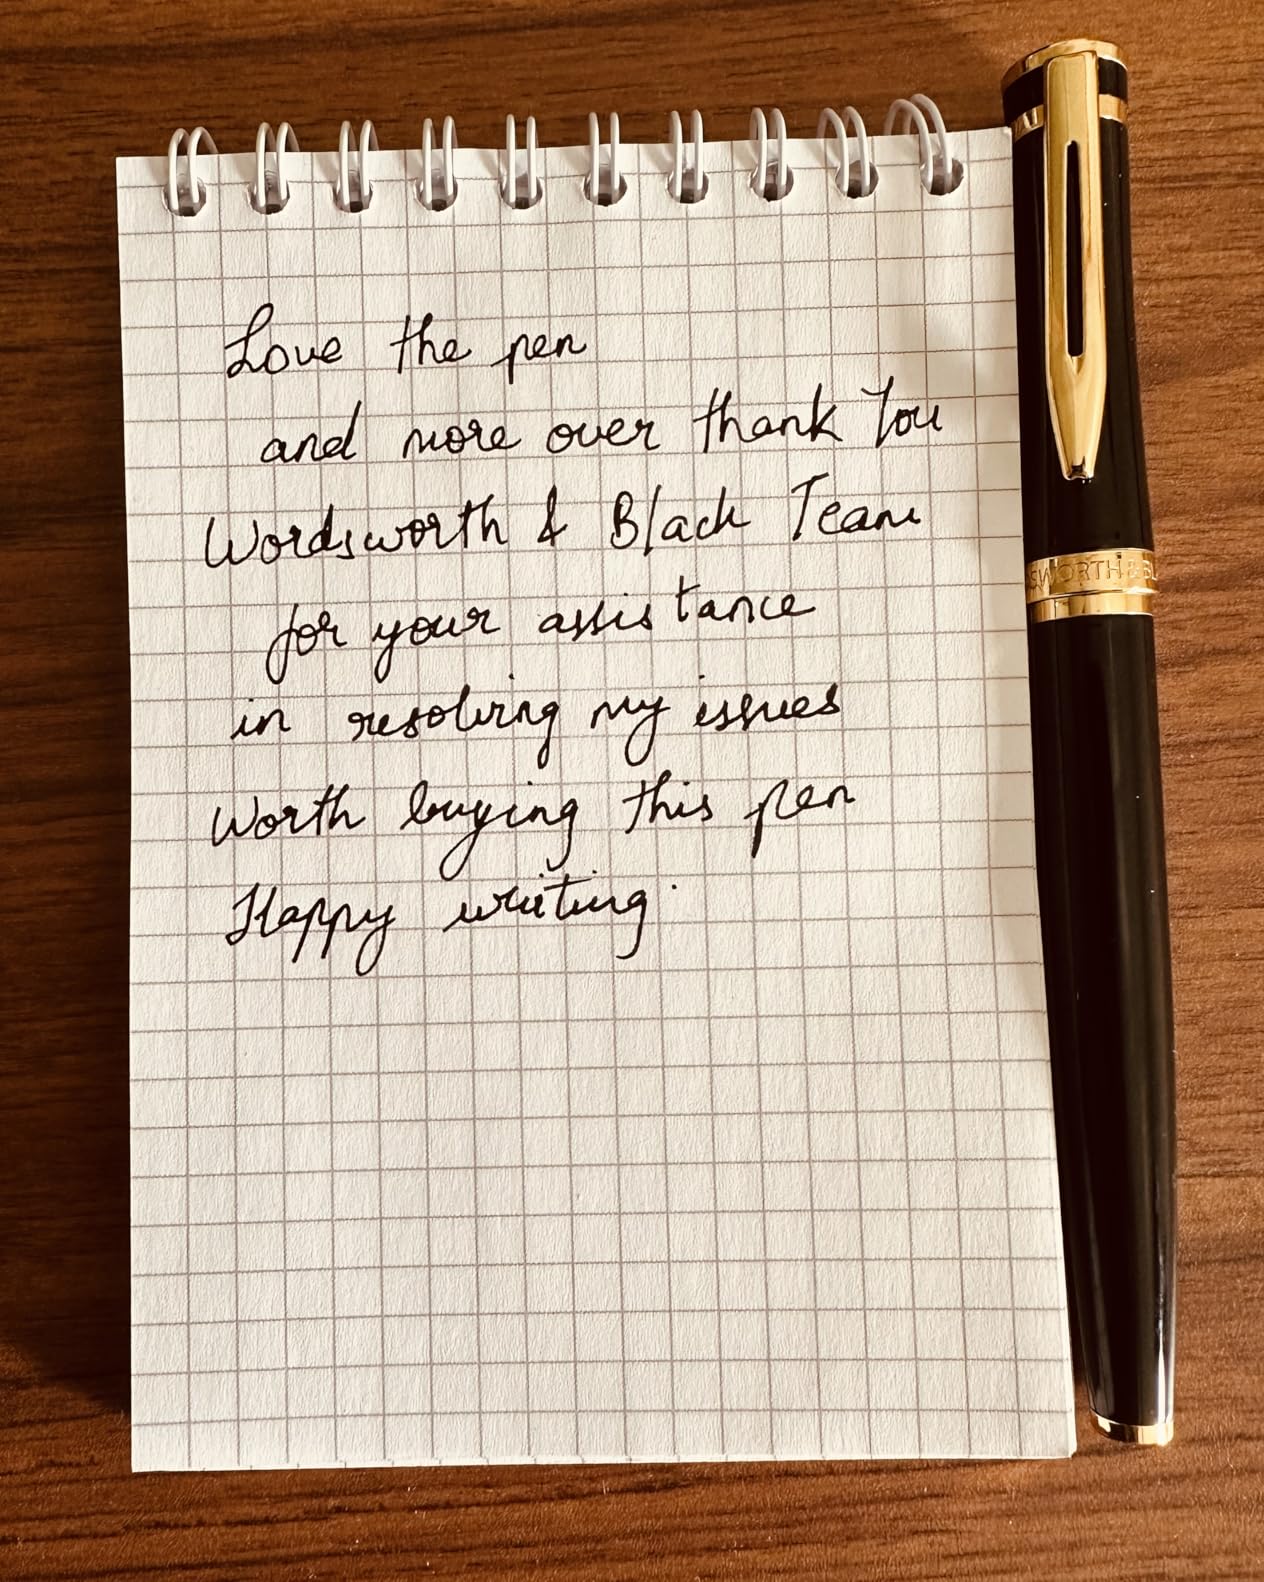 Love the pen
and more over thank You
Wordsworth & Black Team
for your assistance
in resolving my issues
Worth buying this pen
Happy writing.
SWORTH & BL